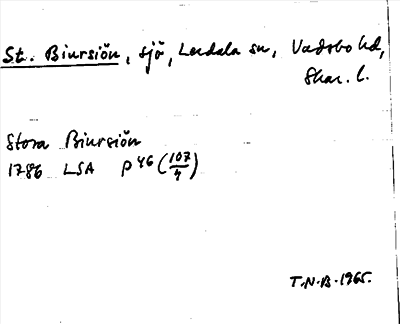 St. Biursiön, sjö, Lerdala sn, Vadsbo hd,
Skar. l.
Stora Biursiön
1786 LSA P46 (107/4)
T.N.B. 1965.